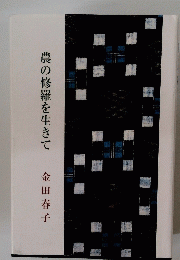 農の修羅を生きて
金田春子